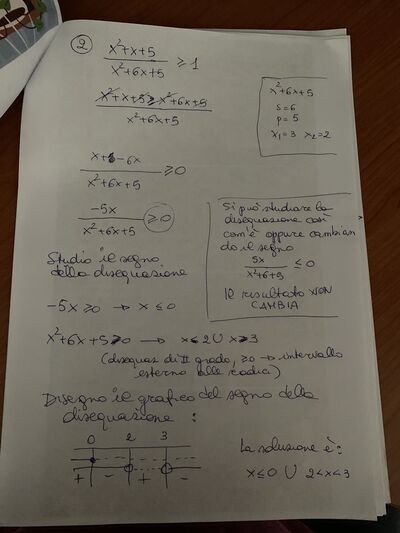 2
x²+x+5
x²+6x+5
≥ 1
x²+x+5 ≥ x²+6x+5
x²+6x+5
x²+6x+5
S=6
P=5
x₁=3 x₂=2
x+ -6x
x²+6x+5
≥0
-5x
x²+6x+5
≥0
Si può studiare la
disequazione così
com'è oppure cambian
do il segno
5x
x²+6+5
≤ 0
Il risultato NON
CAMBIA
Studio il segno
della disequazione
-5x ≥0 → x ≤ 0
x²+6x+5 ≥0 → x≤2 U x≥3
(disequaz di II grado, ≥0 → intervallo
esterno alle radici)
Disegno il grafico del segno della
disequazione :
0 2 3
+ - + -
La soluzione è:
x≤0 U 2<x<3